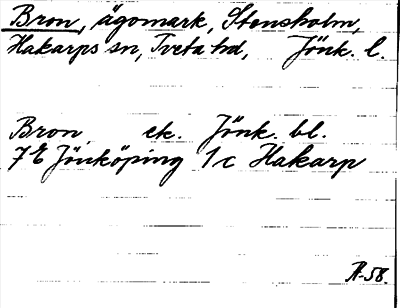 Bron, ägomark, Stensholm,
Hakarps sn, Tveta hd, Jönk. l.
Bron ek. Jönk. bl.
7E Jönköping 1c Hakarp
A-58.